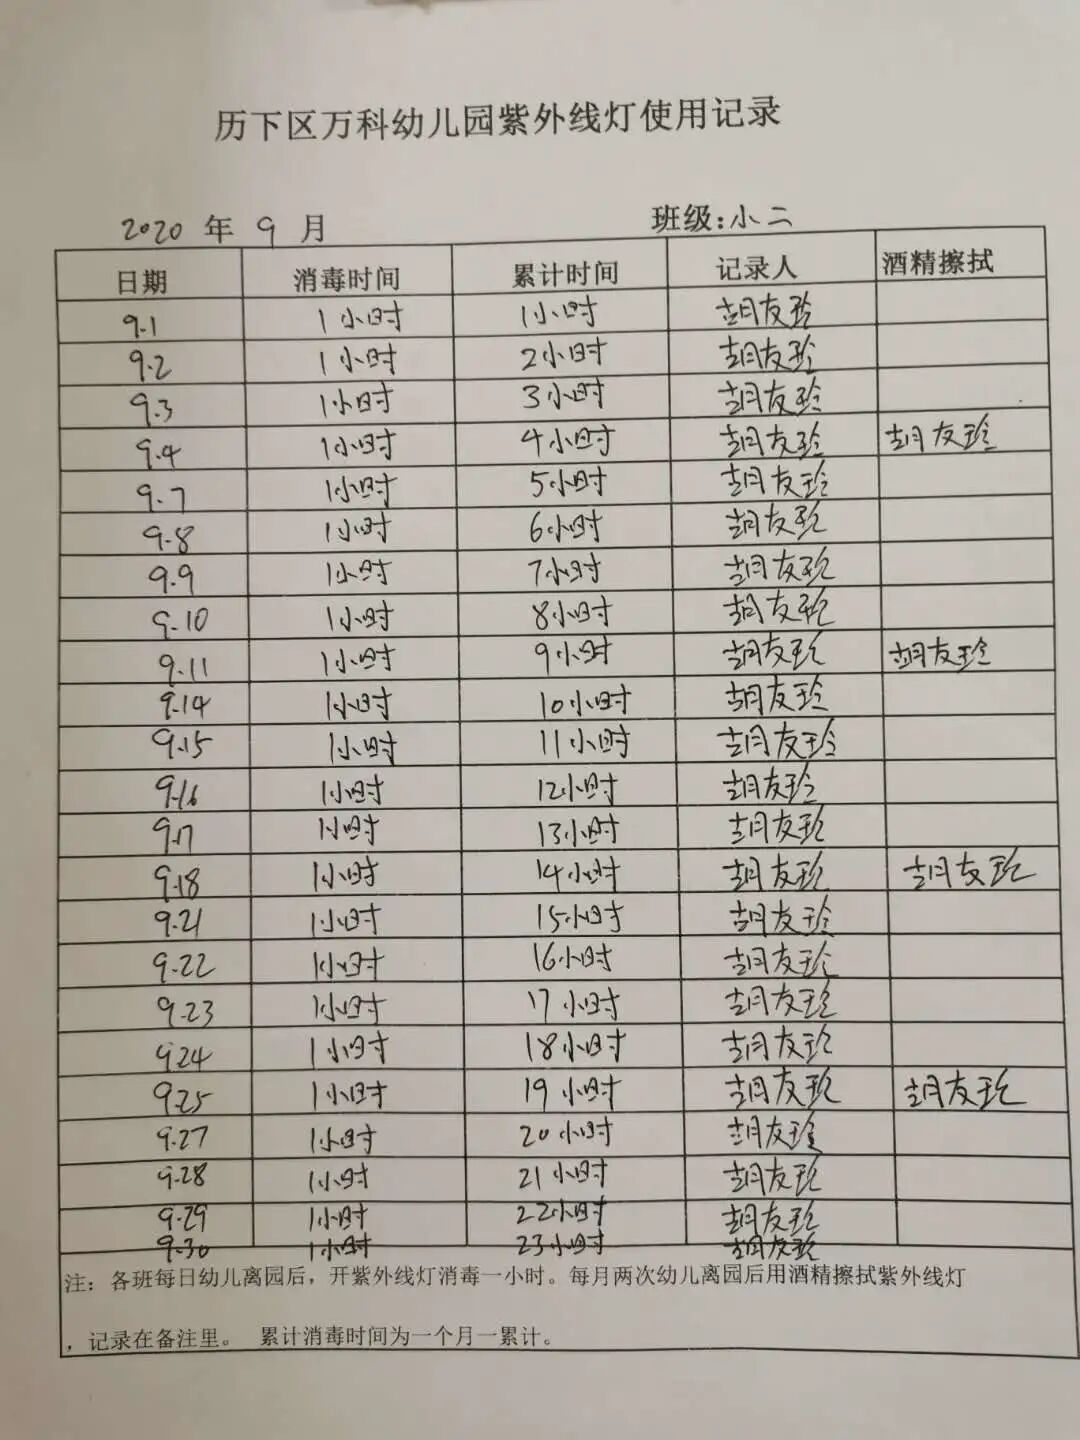 历下区万科幼儿园紫外线灯使用记录
2020 年 9 月 班级:小二
日期 消毒时间 累计时间 记录人 酒精擦拭
9.1 1小时 1小时 胡友玲
9.2 1小时 2小时 胡友玲
9.3 1小时 3小时 胡友玲
9.4 1小时 4小时 胡友玲 胡友玲
9.7 1小时 5小时 胡友玲
9.8 1小时 6小时 胡友玲
9.9 1小时 7小时 胡友玲
9.10 1小时 8小时 胡友玲
9.11 1小时 9小时 胡友玲 胡友玲
9.14 1小时 10小时 胡友玲
9.15 1小时 11小时 胡友玲
9.16 1小时 12小时 胡友玲
9.17 1小时 13小时 胡友玲
9.18 1小时 14小时 胡友玲 胡友玲
9.21 1小时 15小时 胡友玲
9.22 1小时 16小时 胡友玲
9.23 1小时 17小时 胡友玲
9.24 1小时 18小时 胡友玲
9.25 1小时 19小时 胡友玲 胡友玲
9.27 1小时 20小时 胡友玲
9.28 1小时 21小时 胡友玲
9.29 1小时 22小时 胡友玲
9.30 1小时 23小时 胡友玲
注：各班每日幼儿离园后，开紫外线灯消毒一小时。每月两次幼儿离园后用酒精擦拭紫外线灯
，记录在备注里。 累计消毒时间为一个月一累计。